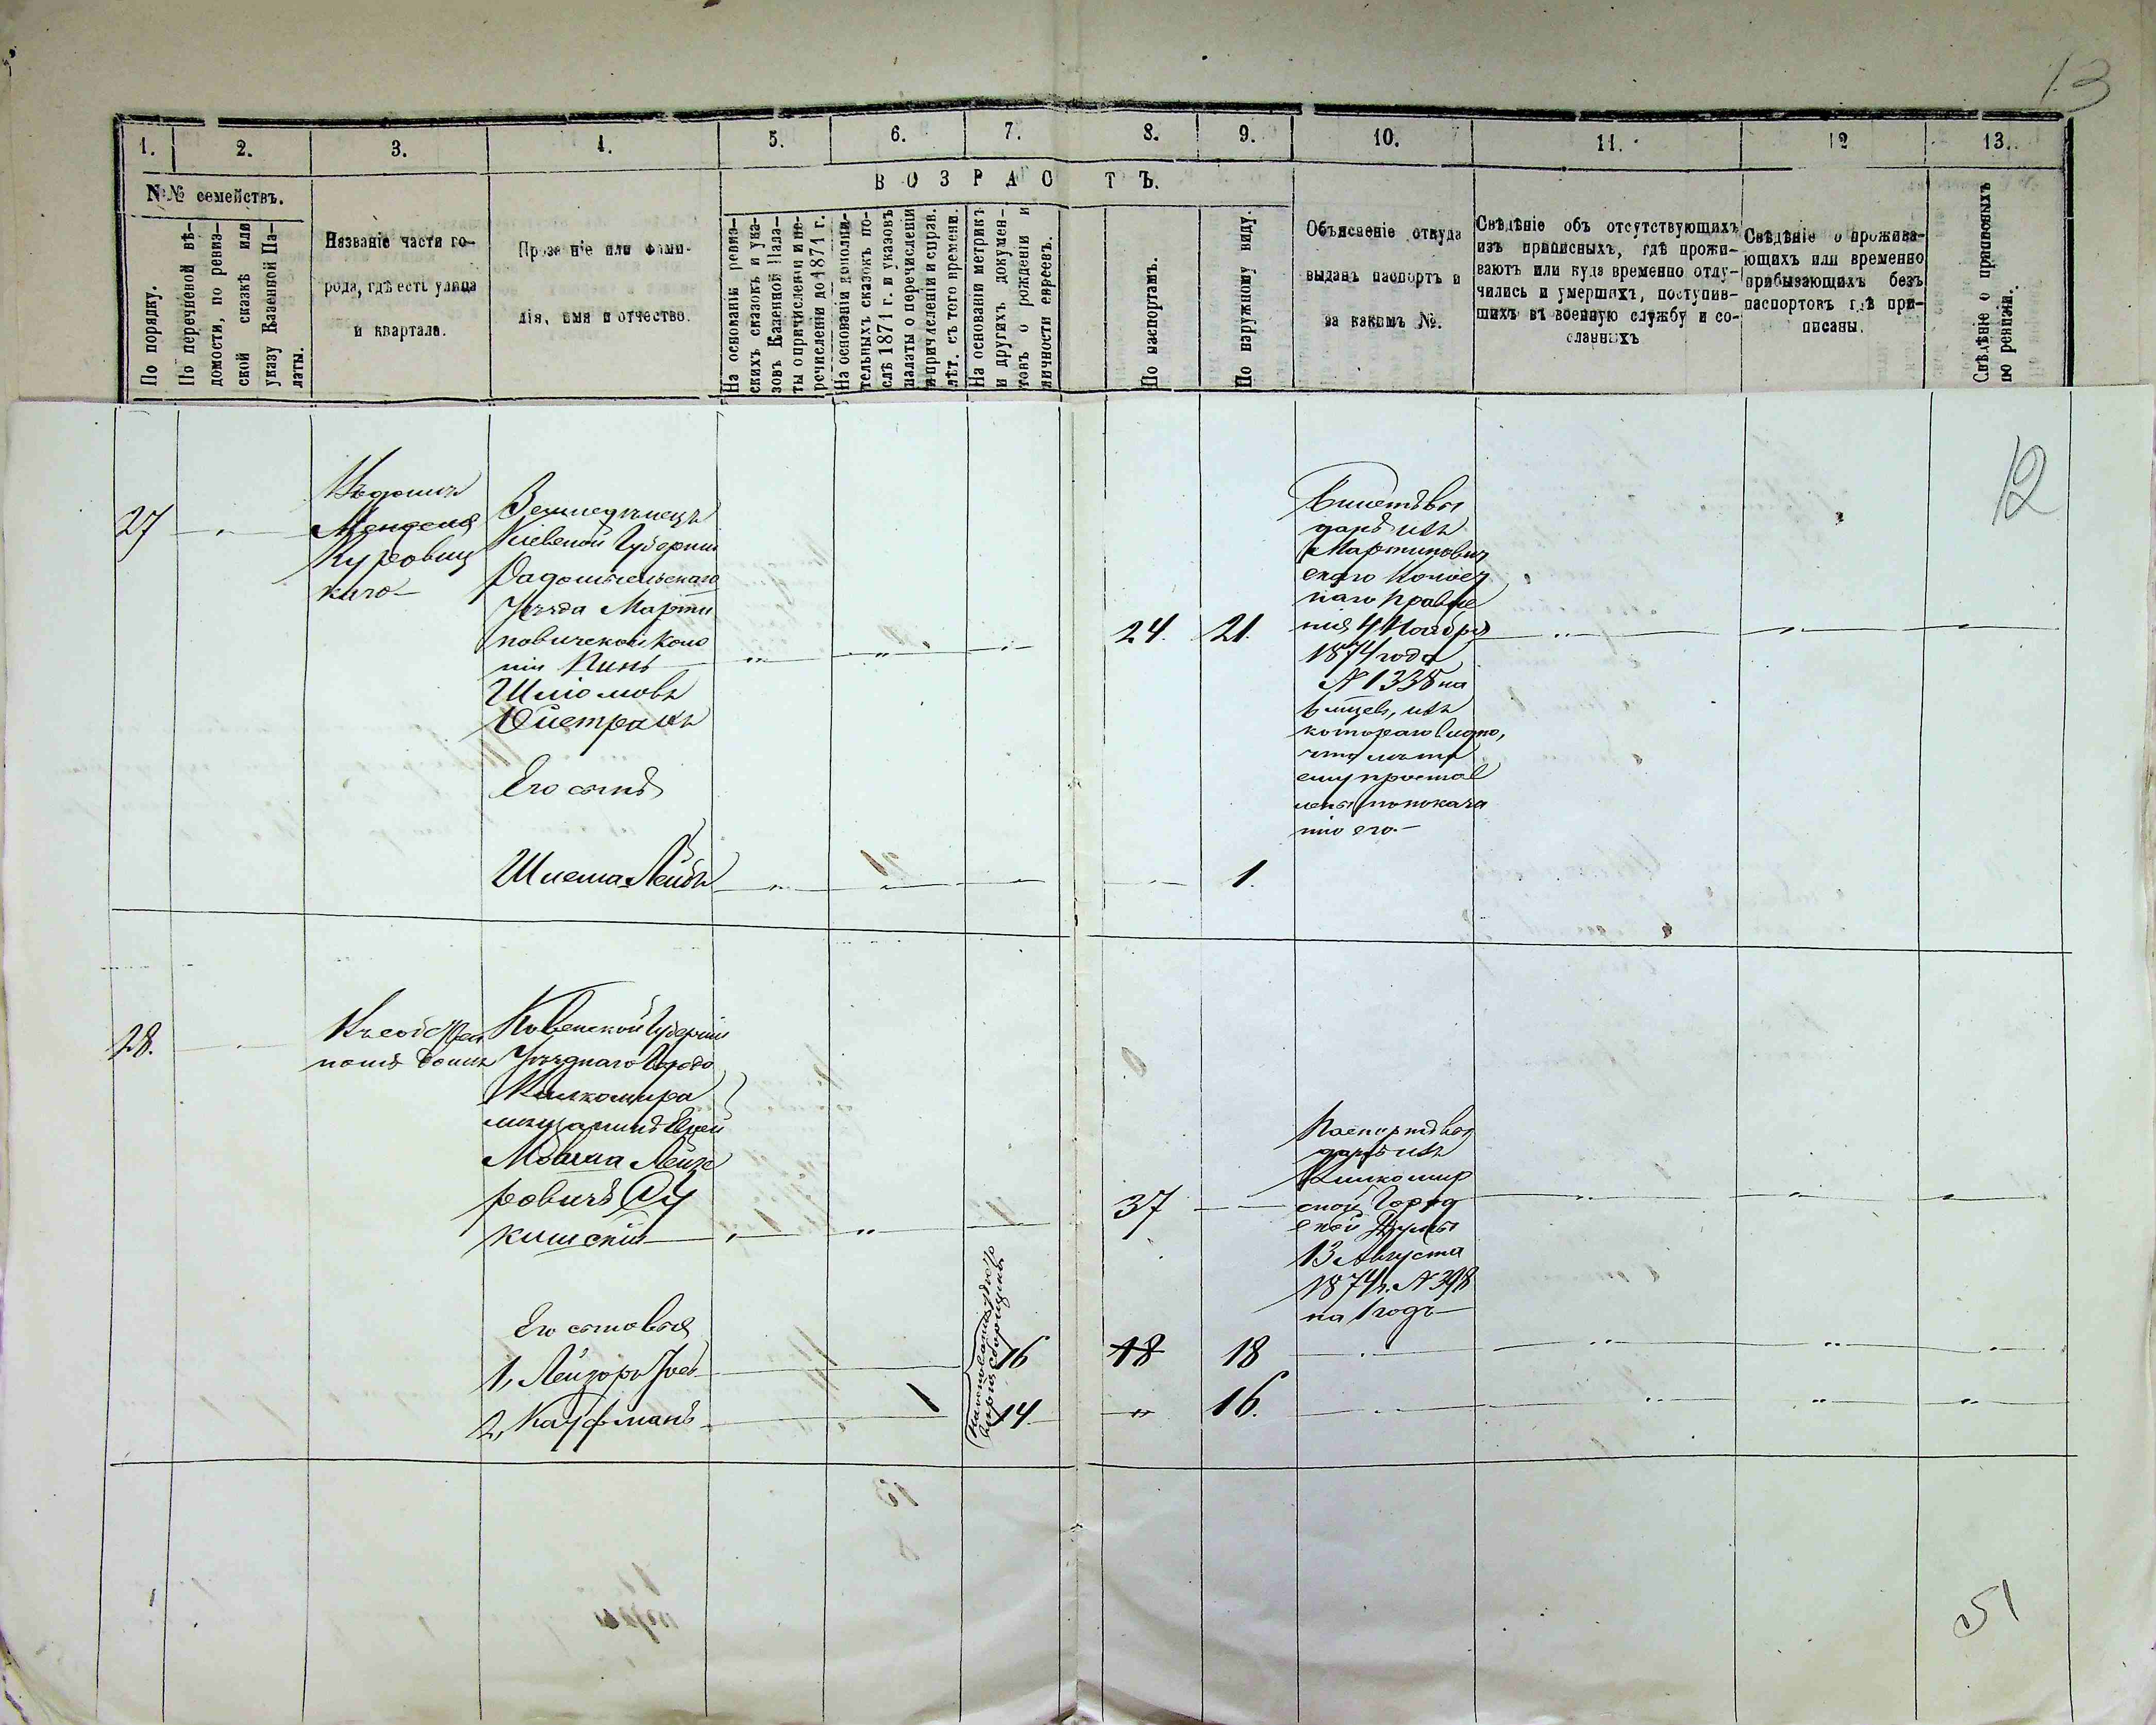 13
1.
2.
3.
4.
5.
6.
7.
8.
9.
10.
11.
12
13.
№№ семействъ.
ВОЗРАСТЪ.
По порядку.
По перечневой вѣ-
домости, по ревиз-
ской сказкѣ или
указу Казенной Па-
латы.
Названіе части го-
рода, гдѣ есть улица
и квартала.
Прозваніе или фами-
лія, имя и отчество.
На основаніи ревиз-
скихъ сказокъ и ука-
зовъ Казенной Пала-
ты о причисленіи и пе-
речисленіи до 1871 г.
На основаніи дополни-
тельныхъ сказокъ по-
слѣ 1871 г. и указовъ
палаты о перечисленіи
и причисленіи и справ.
лѣт. съ того времени.
На основаніи метрикъ
и другихъ докумен-
товъ о рожденіи и
личности евреевъ.
По паспортамъ.
По наружному виду.
Объясненіе откуда
выданъ паспортъ и
за какимъ №.
Свѣдѣніе объ отсутствующихъ
изъ приписныхъ, гдѣ прожи-
ваютъ или куда временно отлу-
чились и умершихъ, поступив-
шихъ въ военную службу и со-
сланныхъ
Свѣдѣніе о прожива-
ющихъ или временно
прибывающихъ безъ
паспортовъ гдѣ при-
писаны.
Свѣдѣніе о приписныхъ
по ревизіи.
12
27
Въ домѣ
Менделя
Куровиц
каго
Земледѣлецъ
Кіевской Губерніи
Радомысльскаго
Уѣзда Марти
новической Коло
ніи Пинь
Шліомовъ
Ойстрахъ
24.
21.
Билетъ вы
данъ изъ
Мартинович
скаго
наго Правле
нія 4 Ноября
1874 года
№ 1338 на
6 мцевъ, изъ
котораго видно,
что лѣта
ему простав
лены по показа
нію его.
Его сынъ
Шлема Лейбъ
1.
28.
Въ собствен
номъ домѣ
Ковенской Губерніи
Уѣзднаго Города
Вилкомира
мѣщанинъ
Мовша Лейзе
ровичъ Су
кишскій
37
Паспортъ вы
данъ изъ
Вилкомир
ской Город
ской Думы
13 Августа
1874 г. № 398
на 1 годъ
Его сыновья
1, Лейзоръ
16
18
18
2, Кауфманъ
14
16.
51